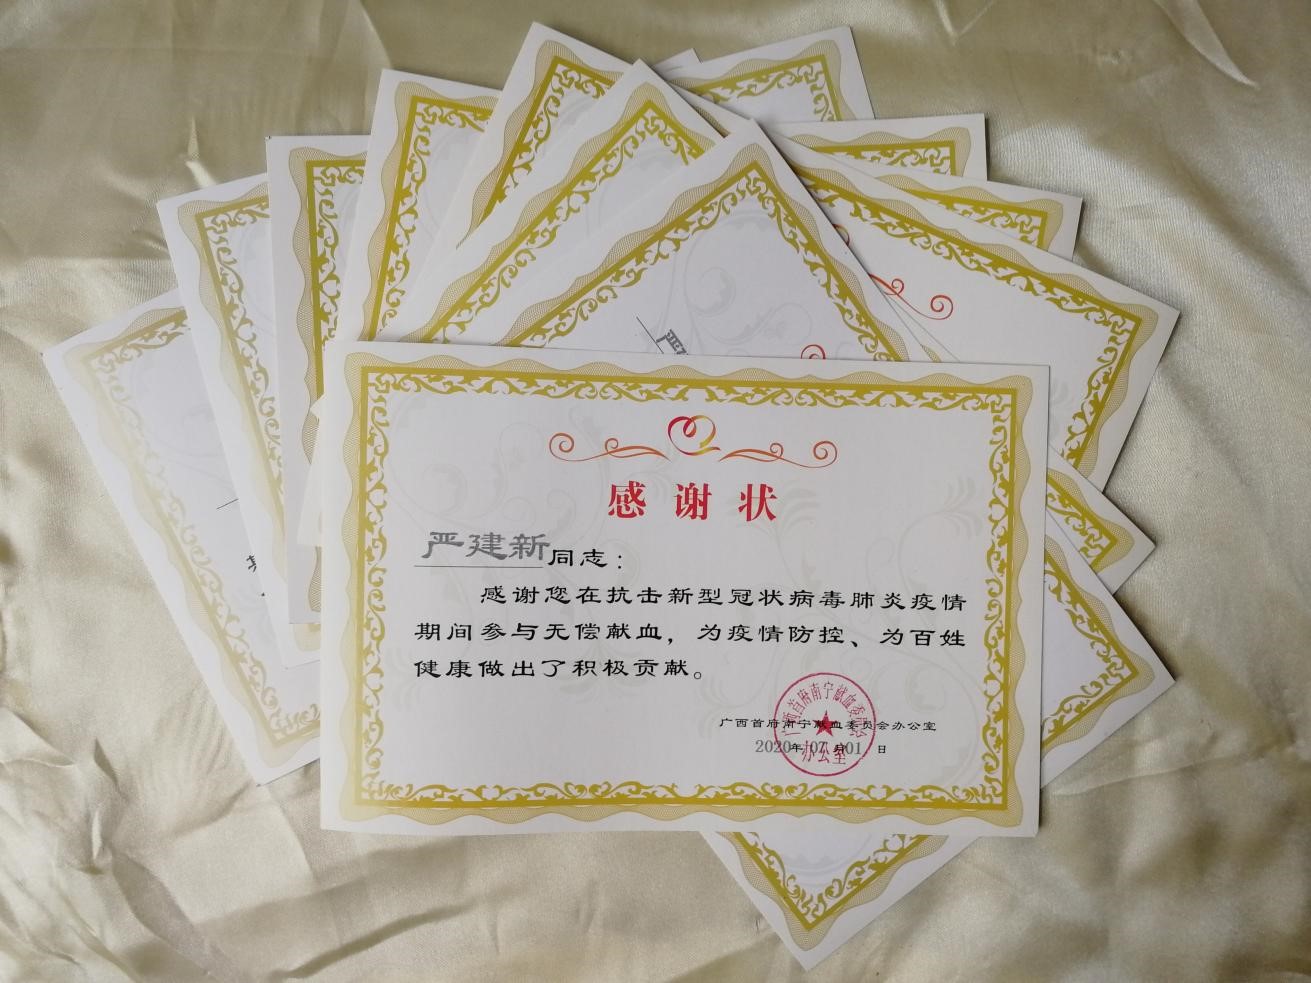 严
感谢状
严建新同志：
感谢您在抗击新型冠状病毒肺炎疫情
期间参与无偿献血，为疫情防控、为百姓
健康做出了积极贡献。
广西首府南宁献血委员会办公室
2020年07月01日
广西首府南宁献血委员会
办公室